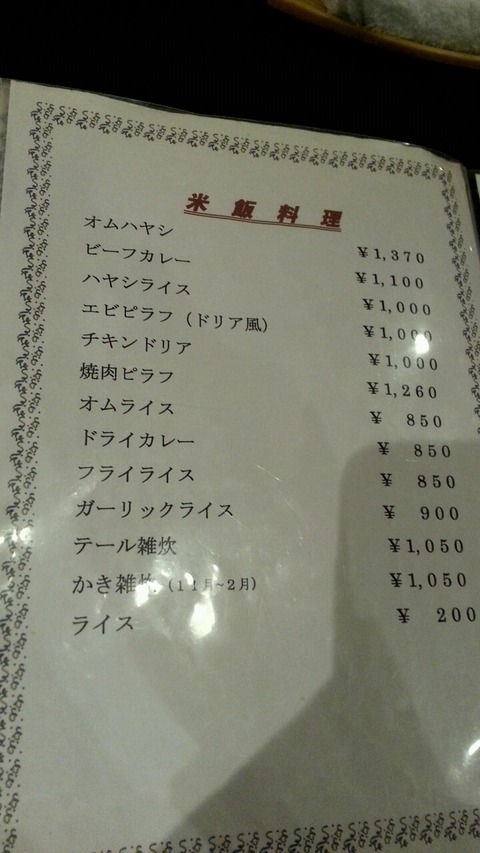 米飯料理
オムハヤシ ￥1,370
ビーフカレー ￥1,100
ハヤシライス ￥1,000
エビピラフ（ドリア風） ￥1,000
チキンドリア ￥1,000
焼肉ピラフ ￥1,260
オムライス ￥ 850
ドライカレー ￥ 850
フライライス ￥ 850
ガーリックライス ￥ 900
テール雑炊 ￥1,050
かき雑炊（11月~2月） ￥1,050
ライス ￥ 200